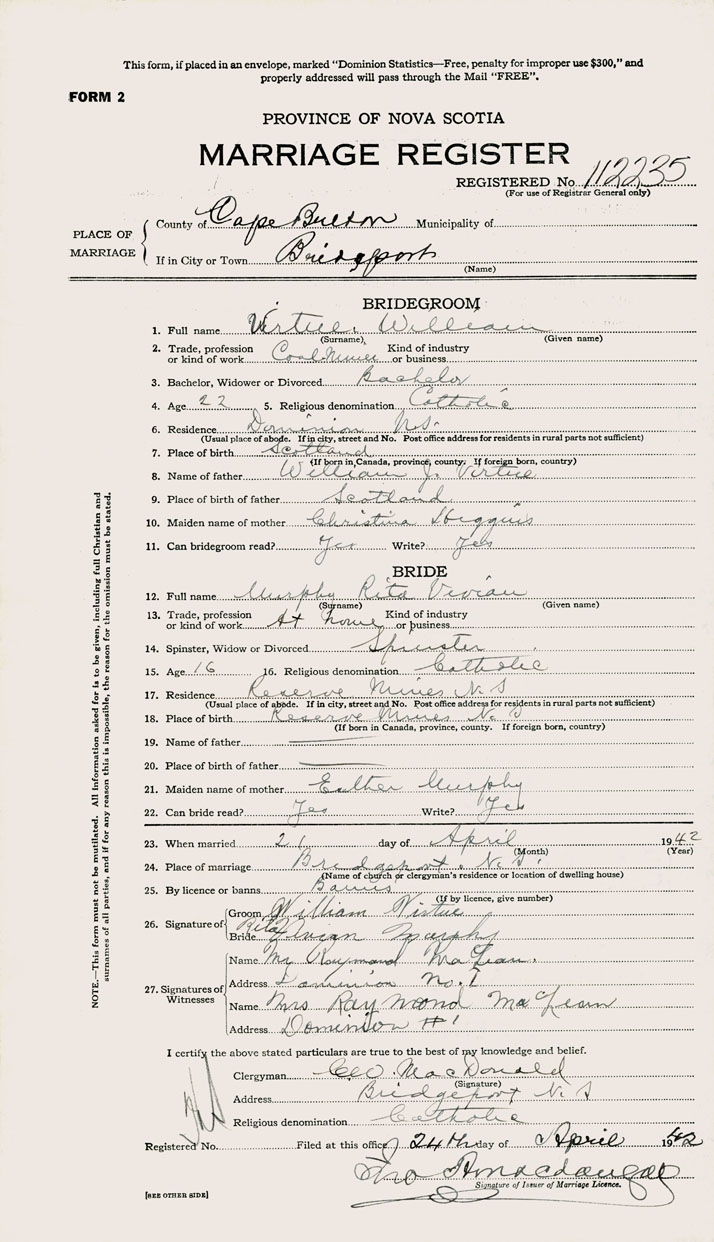 This form, if placed in an envelope, marked "Dominion Statistics—Free, penalty for improper use $300," and
properly addressed will pass through the Mail "FREE".
FORM 2
PROVINCE OF NOVA SCOTIA
MARRIAGE REGISTER
REGISTERED No. 112235
(For use of Registrar General only)
PLACE OF MARRIAGE
County of Cape Breton Municipality of
If in City or Town Bridgeport
(Name)
BRIDEGROOM
1. Full name Virtue, William
(Surname) (Given name)
2. Trade, profession or kind of work Coal Miner Kind of industry or business
3. Bachelor, Widower or Divorced Bachelor
4. Age 22 5. Religious denomination Catholic
6. Residence Dominion N.S.
(Usual place of abode. If in city, street and No. Post office address for residents in rural parts not sufficient)
7. Place of birth Scotland
(If born in Canada, province, county. If foreign born, country)
8. Name of father William J. Virtue
9. Place of birth of father Scotland
10. Maiden name of mother Christina Higgins
11. Can bridegroom read? Yes Write? Yes
BRIDE
12. Full name Murphy Rita Vivian
(Surname) (Given name)
13. Trade, profession or kind of work At home Kind of industry or business
14. Spinster, Widow or Divorced Spinster
15. Age 16 16. Religious denomination Catholic
17. Residence Reserve Mines N.S
(Usual place of abode. If in city, street and No. Post office address for residents in rural parts not sufficient)
18. Place of birth Reserve Mines N.S
(If born in Canada, province, county. If foreign born, country)
19. Name of father
20. Place of birth of father
21. Maiden name of mother Esther Murphy
22. Can bride read? Yes Write? Yes
23. When married 21 day of April 1942
(Month) (Year)
24. Place of marriage Bridgeport, N.S.
(Name of church or clergyman's residence or location of dwelling house)
25. By licence or banns Banns
(If by licence, give number)
26. Signature of
Groom William Virtue
Bride Rita Vivian Murphy
27. Signatures of Witnesses
Name Mr Raymond MacLean.
Address Dominion No. 1
Name Mrs Raymond MacLean
Address Dominion #1
I certify the above stated particulars are true to the best of my knowledge and belief.
Clergyman MacDonald
(Signature)
Address Bridgeport N.S
Religious denomination Catholic
Registered No. Filed at this office 24th day of April 1942
Signature of Issuer of Marriage Licence.
[SEE OTHER SIDE]
NOTE.—This form must not be mutilated. All information asked for is to be given, including full Christian and
surnames of all parties, and if for any reason this is impossible, the reason for the omission must be stated.